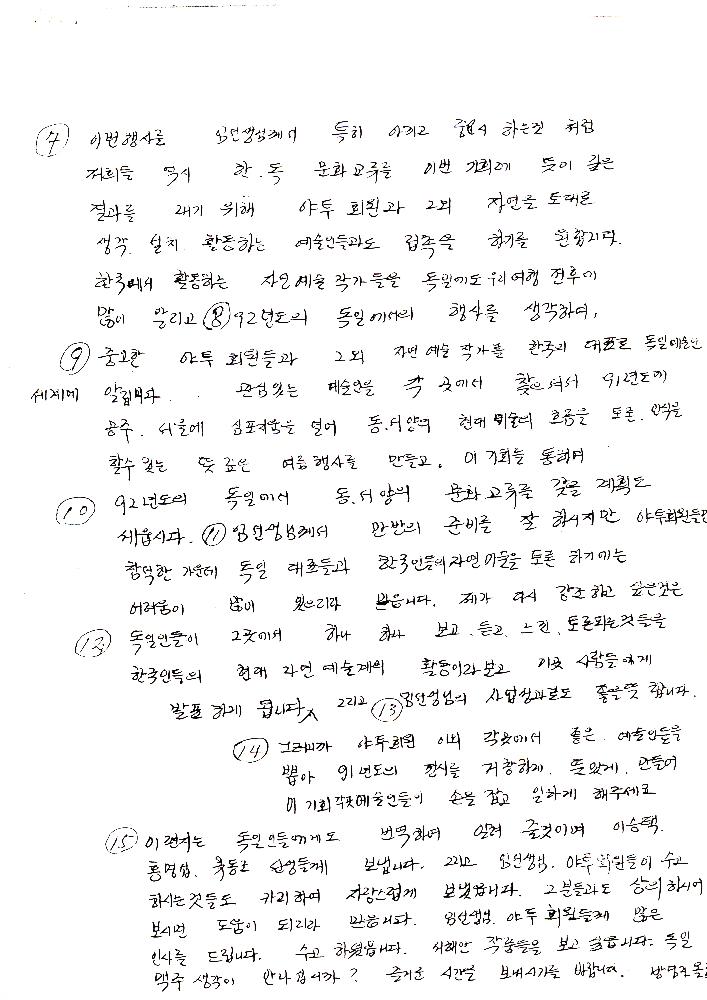 ⑦ 이번 행사를 임선생님께서 특히 아끼고 중요시 하는것 처럼
저희들 역시 한.독 문화교류를 이번 기회에 뜻이 깊은
결과를 래기 위해 야투 회원과 그외 자연을 토대로
생각. 설치. 활동하는 예술인들과도 접촉을 하기를 원합니다.
한국에서 활동하는 자연예술 작가들을 독일에도 우리여행 전후에
많이 알리고 ⑧ 92년도의 독일에서의 행사를 생각하여,
⑨ 야투 회원들과 그외 자연 예술 작가를 한국의 대표로 독일예술인
세계에 알립니다. 관심있는 예술인을 각 곳에서 찾으셔서 91년도에
공주. 서울에 심포지움을 열어 동.서양의 현대 미술의 흐름을 토론. 인식을
할수 있는 뜻 깊은 여름행사를 만들고. 이 기회를 통하여
⑩ 92년도의 독일에서 동.서양의 문화교류를 갖을 계획도
세웁시다. ⑪ 임선생님께서 만반의 준비를 잘 하시지만 야투회원들만
참석한 가운데 독일 대표들과 한국인들의 자연미술을 토론 하기에는
어려움이 많이 있으리라 믿습니다. 제가 다시 강조하고 싶은것은
⑫ 독일인들이 그곳에서 하나 하나 보고. 듣고. 느낀. 토론되는것들을
한국인들의 현대 자연 예술계의 활동이라보고 이곳 사람들에게
발표 하게 됩니다. 그리고 ⑬ 임선생님의 사업성과로도 좋을듯 합니다.
⑭ 그러니까 야투회원 이외 각곳에서 좋은 예술인들을
뽑아 91년도의 전시를 거창하게. 뜻있게. 만들어
이 기회 각곳예술인들이 손을 잡고 일하게 해주세요
⑮ 이 편지는 독일인들에게도 번역하여 알려 줄것이며 이승택.
홍명섭. 육동 선생들께 보냅니다. 그리고 임선생님. 야투회원들이 수고
하시는것들도 카피하여 자랑스럽게 보냈습니다. 그분들과도 상의하시어
보시면 도움이 되리라 믿습니다. 임선생님. 야투 회원들께 많은
인사를 드립니다. 수고 하셨읍니다. 서해안 작품들을 보고 싶습니다. 독일
맥주 생각이 안나십니까? 즐거운 시간을 보내시기를 바랍니다.